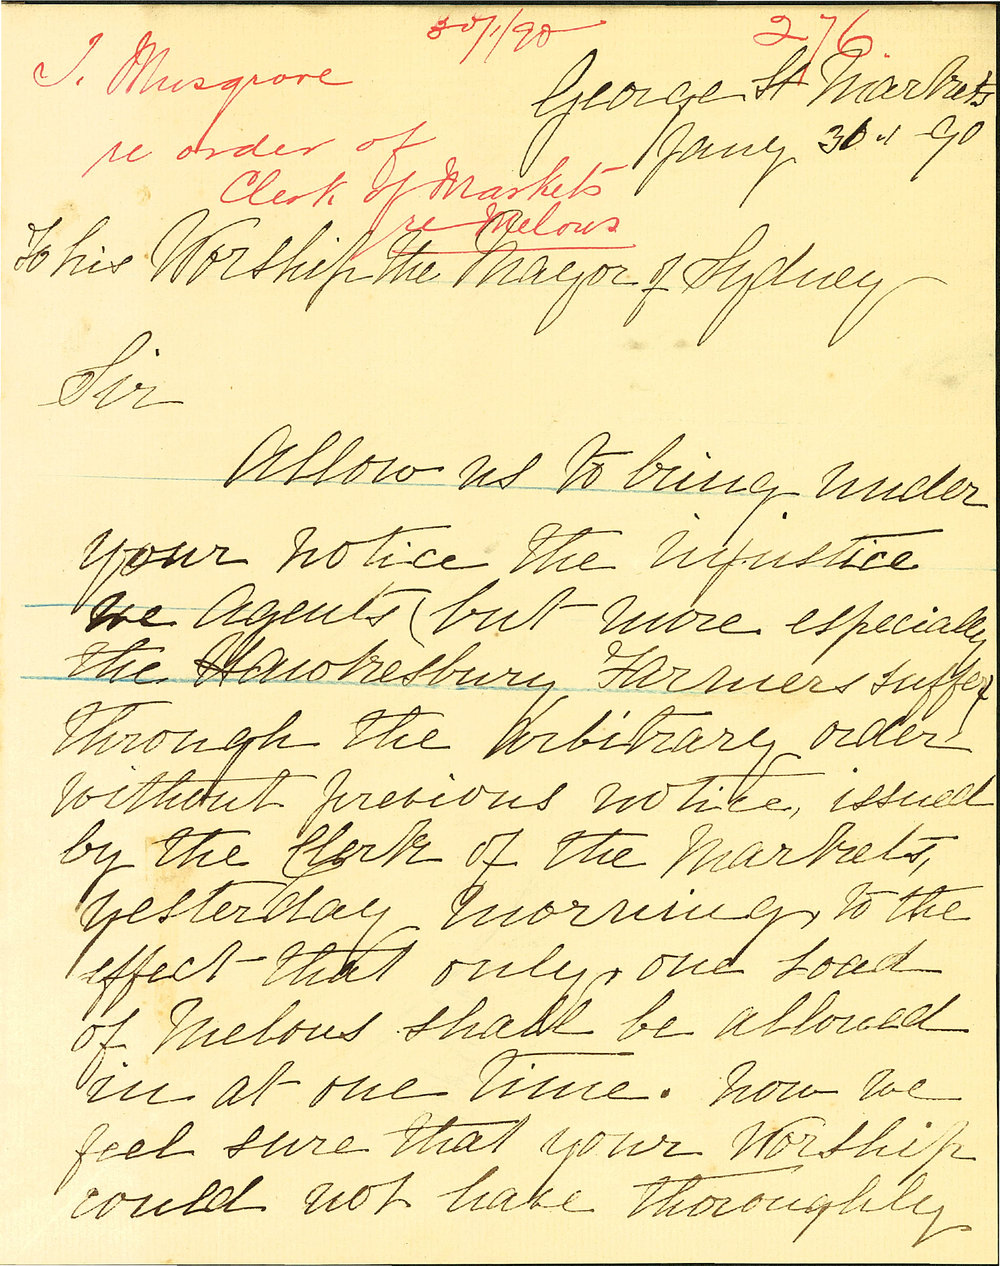 30/1/90
276
T. Musgrove
re order of
Clerk of Markets
re Melons
George St Markets
Jany 30th 90
To his Worship the Mayor of Sydney
Sir
Allow us to bring under
your notice the injustice
we Agents (but more especially
the Hawkesbury Farmers suffer)
through the Arbitrary order
without previous notice, issued
by the Clerk of the Markets,
yesterday morning, to the
effect that only, one Load
of Melons shall be allowed
in at one time. Now we
feel sure that your Worship
could not have thoroughly